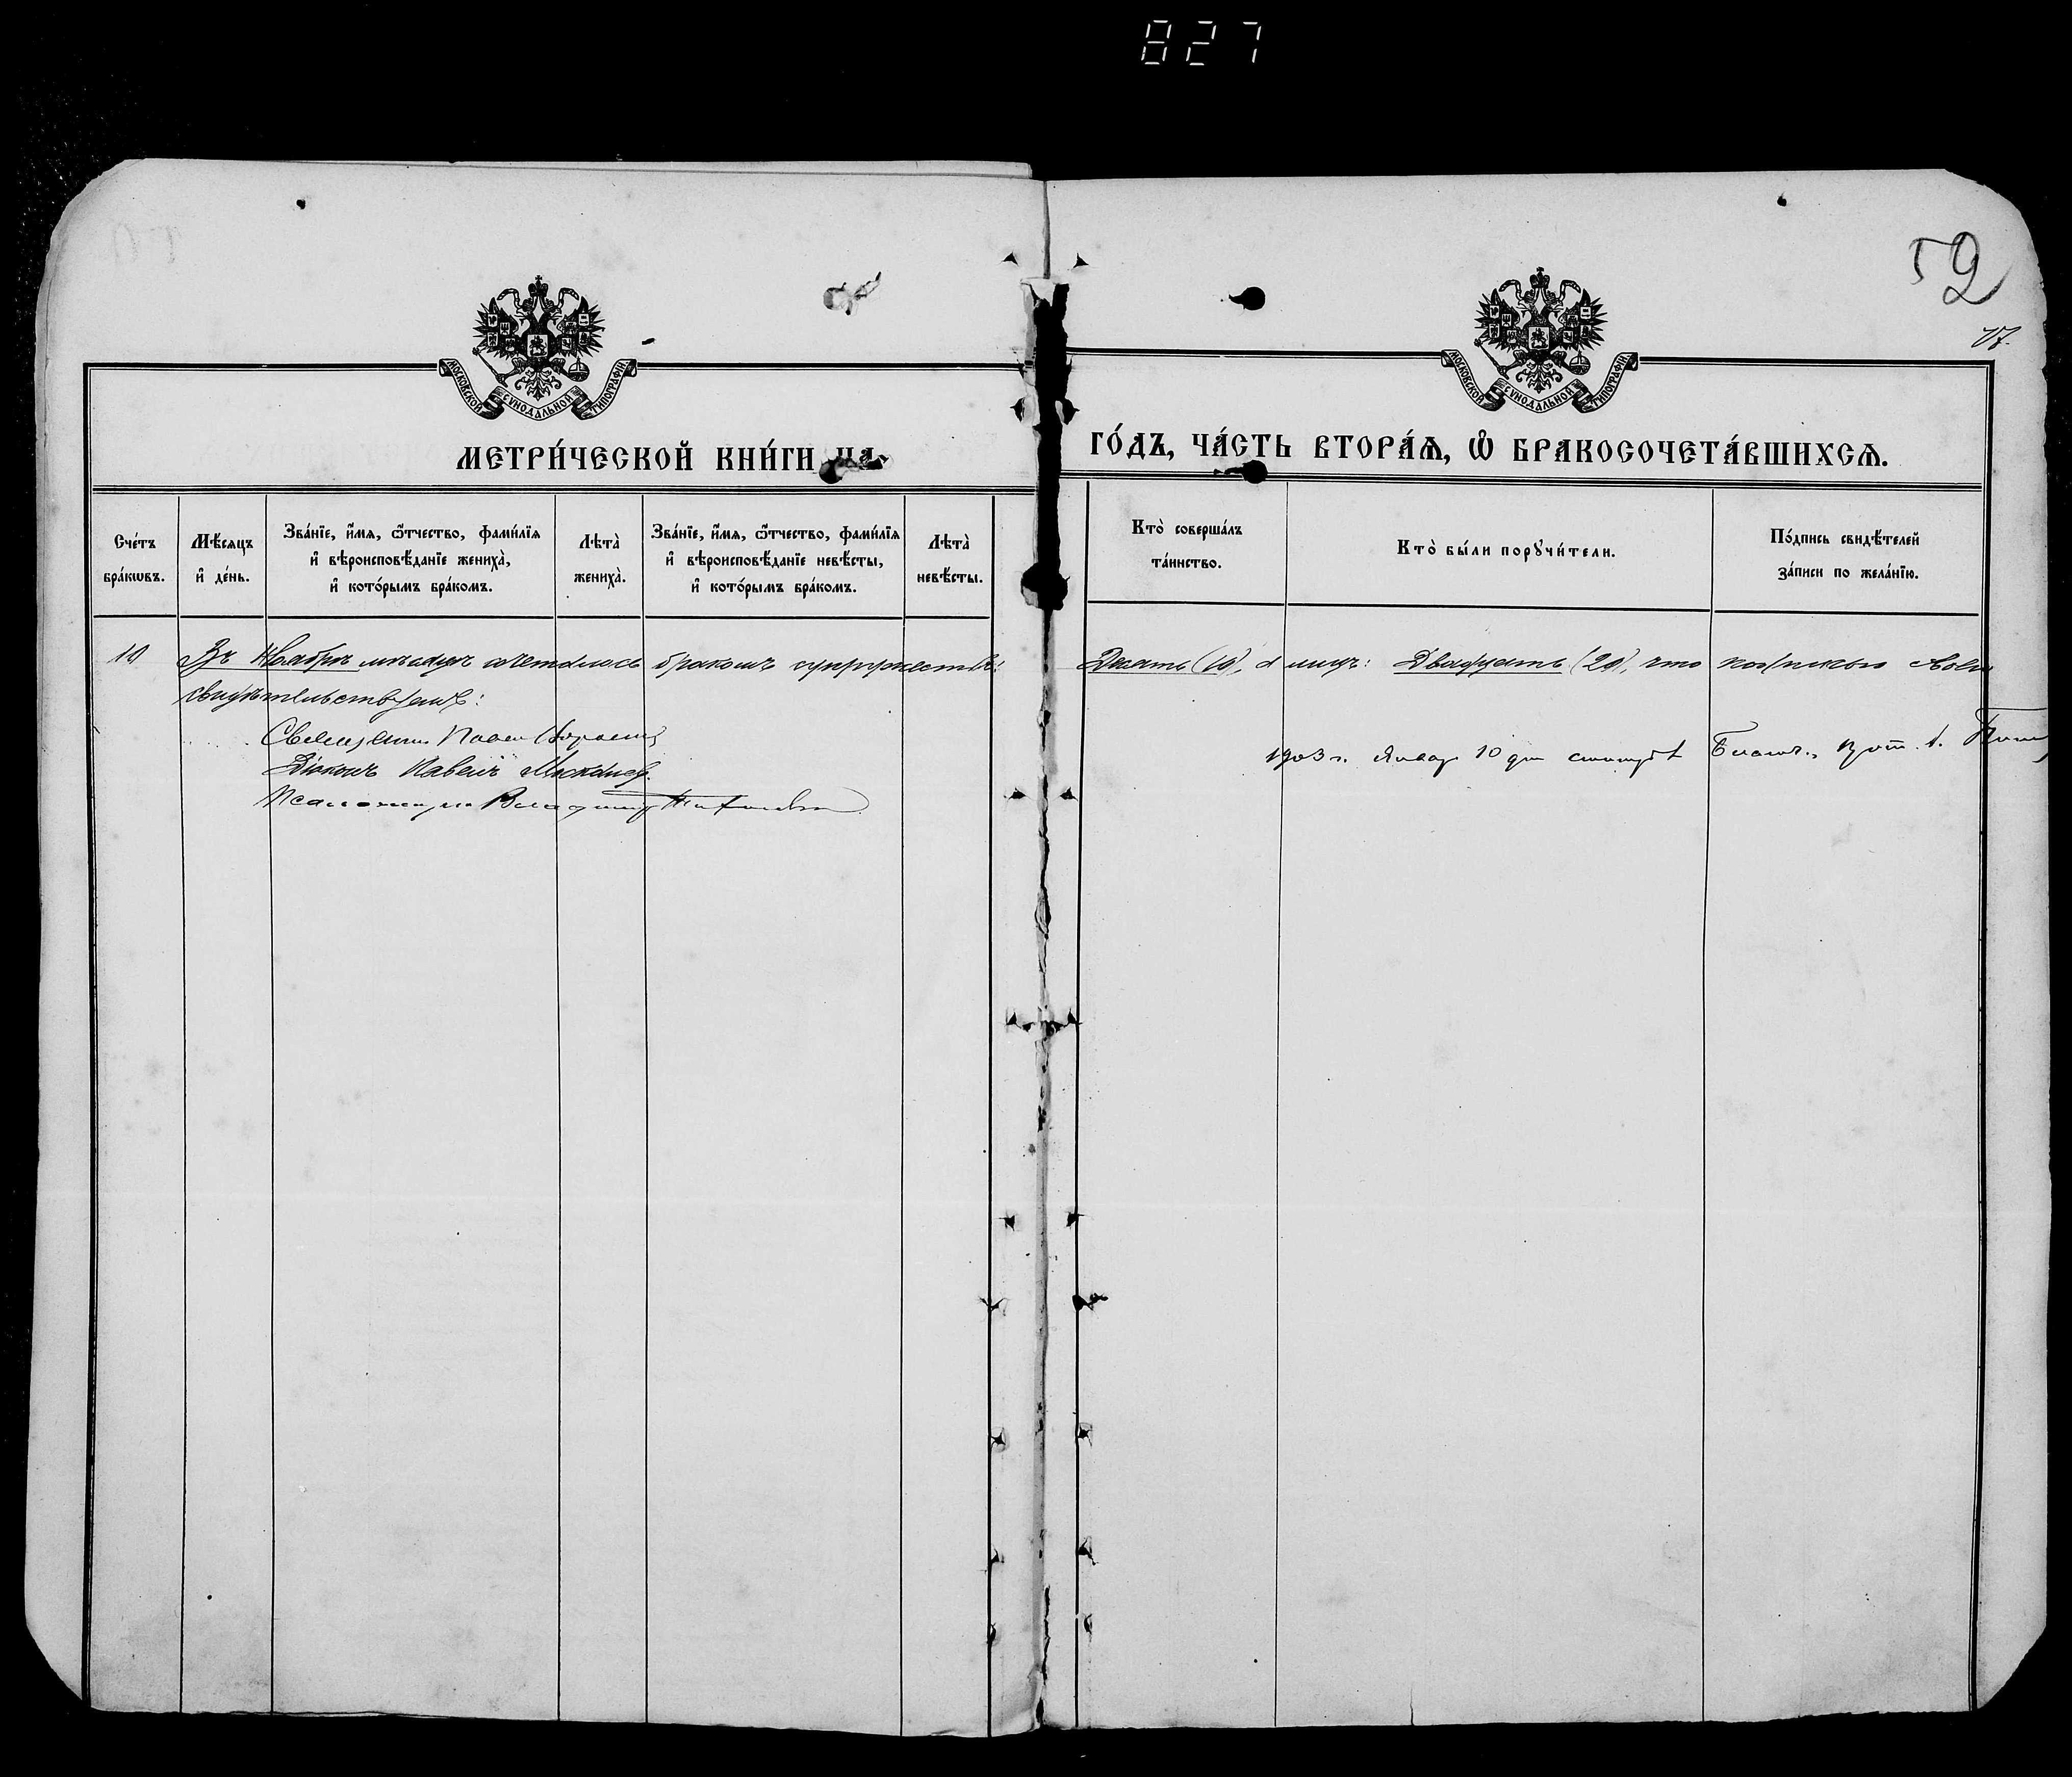 827
52
17.
МОСКОВСКОЙ СѴНОДАЛЬНОЙ ТИПОГРАФІИ
МОСКОВСКОЙ СѴНОДАЛЬНОЙ ТИПОГРАФІИ
МЕТРИ́ЧЕСКОЙ КНИ́ГИ НА
ГО́ДЪ, ЧА́СТЬ ВТОРА́Ѧ, Ѡ҆ БРАКОСОЧЕТА́ВШИХСѦ.
Сче́тъ бра́кѡвъ.
Мѣ́сяцъ и҆ де́нь.
Зва́нїе, и҆́мѧ, ѻ҆́тчество, фами́лїѧ
и҆ вѣроисповѣ́данїе жениха̀,
и҆ кото́рымъ бра́комъ.
Лѣта̀ жениха̀.
Зва́нїе, и҆́мѧ, ѻ҆́тчество, фами́лїѧ
и҆ вѣроисповѣ́данїе невѣ́сты,
и҆ кото́рымъ бра́комъ.
Лѣта̀ невѣ́сты.
Кто̀ соверша́лъ
та́инство.
Кто̀ бы́ли порꙋчи́тели.
По́дпись свидѣ́телей
за́писи по жела́нїю.
10 Въ Ноябрѣ мѣсяцѣ сочеталось бракомъ супружествъ: Десять (10), а лицъ: Двадцать (20), что подписью своею
свидѣтельствуемъ:
Священникъ
Діаконъ Павелъ
Псаломщикъ Владиміръ
1903 г. Январ 10 дня Благоч., прот.